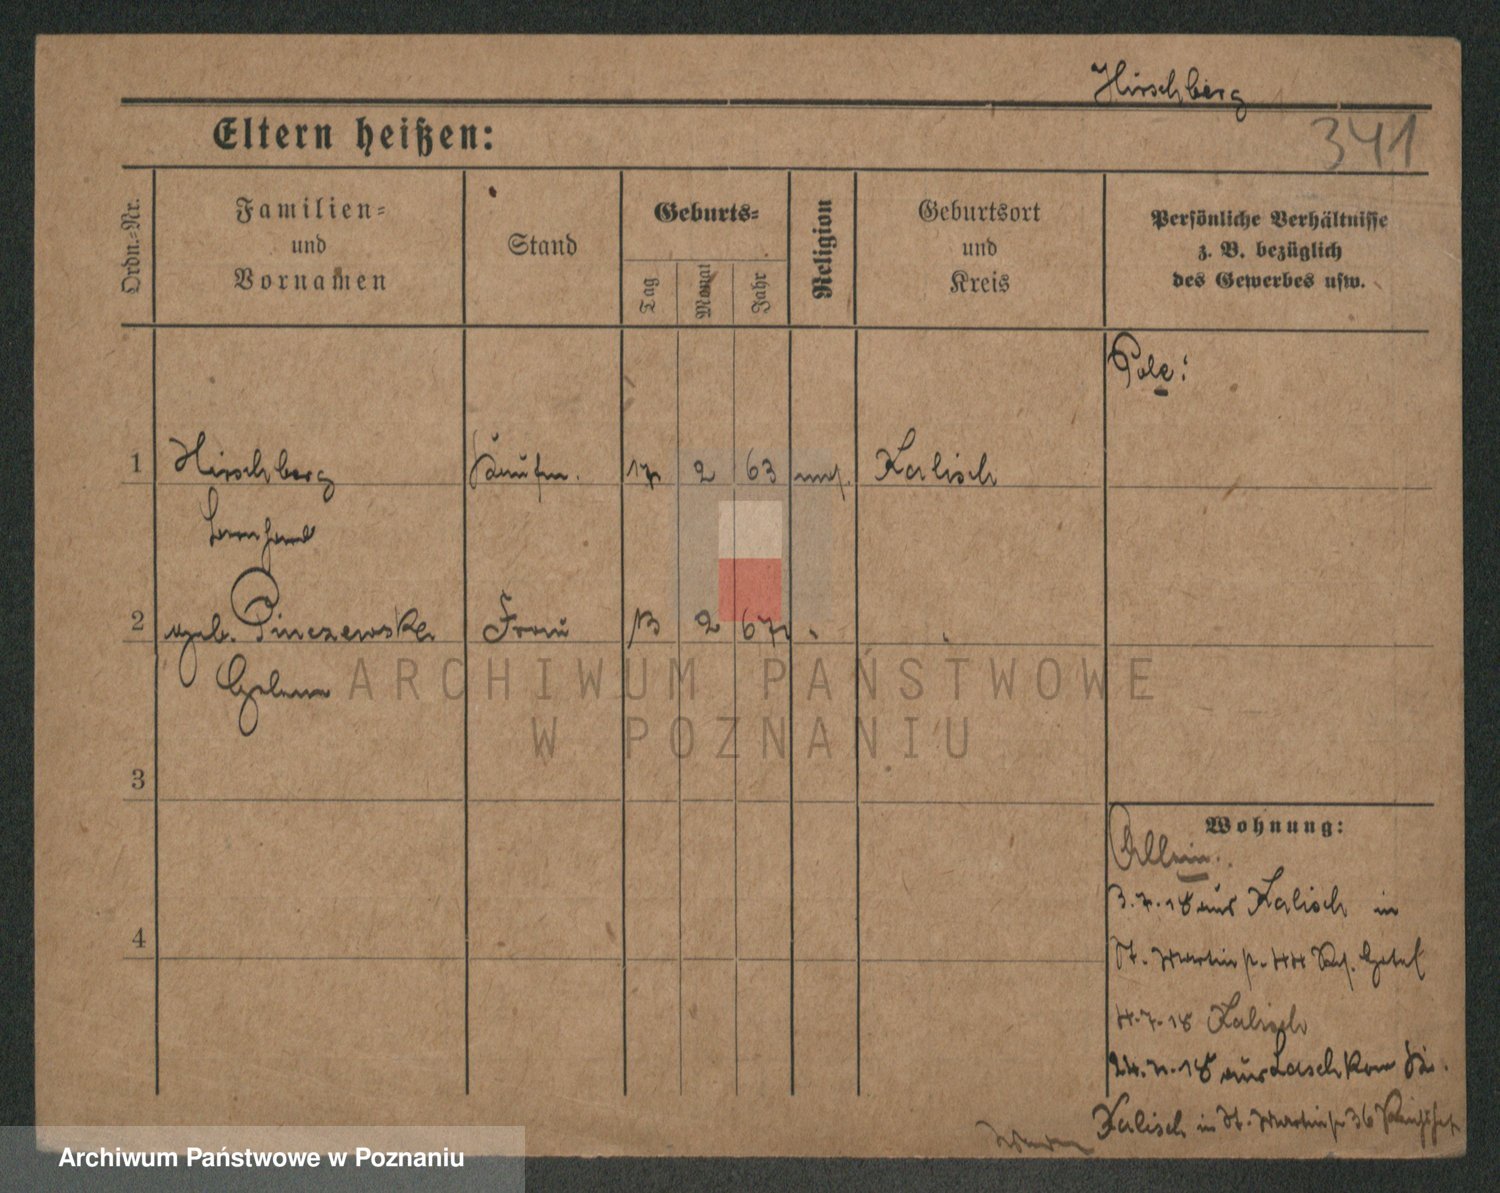 Hirschberg
341
Eltern heißen:
Ordn.-Nr.
Familien-
und
Vornamen
Stand
Geburts-
Tag
Monat
Jahr
Religion
Geburtsort
und
Kreis
Persönliche Verhältnisse
z. B. bezüglich
des Gewerbes usw.
Pole!
1 Hirschberg Kaufm. 17 2 63 mos. Kalisch
Bernhard
2 geb. Pinczewski Frau 13 2 67 " "
Helene
3
4
Wohnung:
Allein.
3.7.18 aus Kalisch in
St. Martinstr. 44
4.7.18 Kalisch
24.7.18 aus Lask
Kalisch in St. Martinstr 36
ARCHIWUM PAŃSTWOWE
W POZNANIU
Archiwum Państwowe w Poznaniu